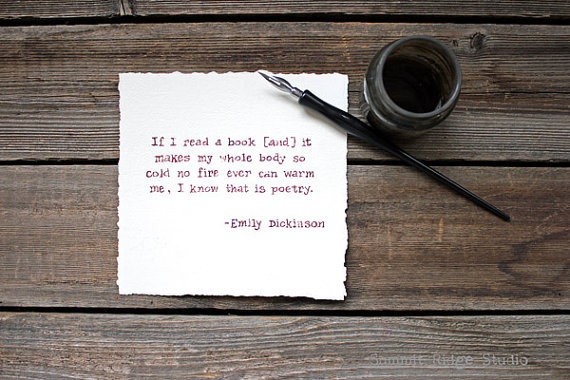 If I read a book [and] it
makes my whole body so
cold no fire ever can warm
me, I know that is poetry.
-Emily Dickinson
Summit Ridge Studio